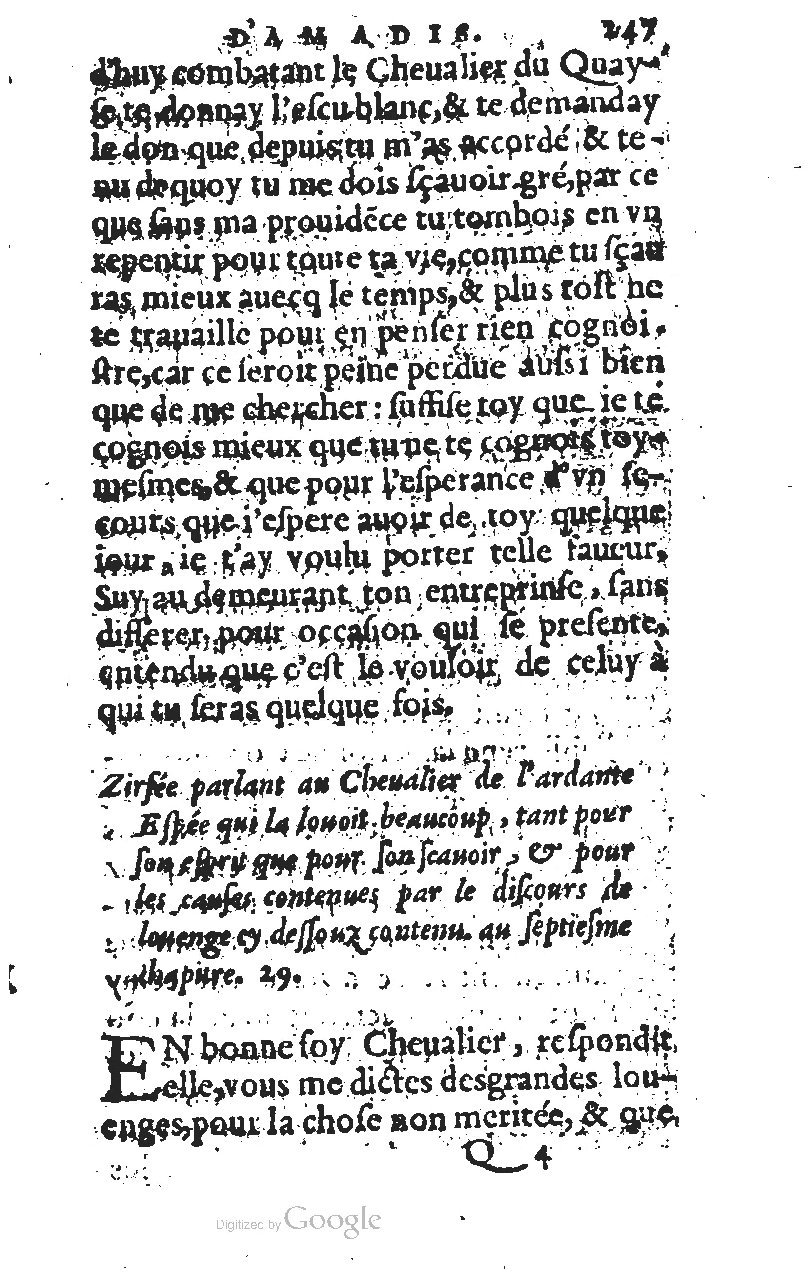 D'AMADIS. 247
d'huy combatant le Cheualier du Quay,
ie te donnay l'escu blanc, & te demanday
le don que depuis tu m'as accordé & te-
nu dequoy tu me dois sçauoir gré, par ce
que sans ma prouidẽce tu tombois en vn
repentir pour toute ta vie, comme tu sçau
ras mieux auecq le temps, & plus tost ne
te trauaille pour en penser rien cognoi-
stre, car ce seroit peine perdue aussi bien
que de me chercher: suffise toy que ie te
cognois mieux que tu ne te cognois toy-
mesmes, & que pour l'esperance d'vn se-
cours que i'espere auoir de toy quelque
iour, ie t'ay voulu porter telle faueur,
Suy au demeurant ton entreprinse, sans
differer pour occasion qui se presente,
entendu que c'est le vouloir de celuy à
qui tu seras quelque fois.
Zirfée parlant au Cheualier de l'ardante
Espée qui la louoit beaucoup, tant pour
son esprit que pour son scauoir, & pour
les causes contenues par le discours de
louenge cy dessouz contenu au septiesme
chapitre. 29.
EN bonne foy Cheualier, respondit
elle, vous me dictes des grandes lou-
enges, pour la chose non meritée, & que
Q 4
Digitized by Google